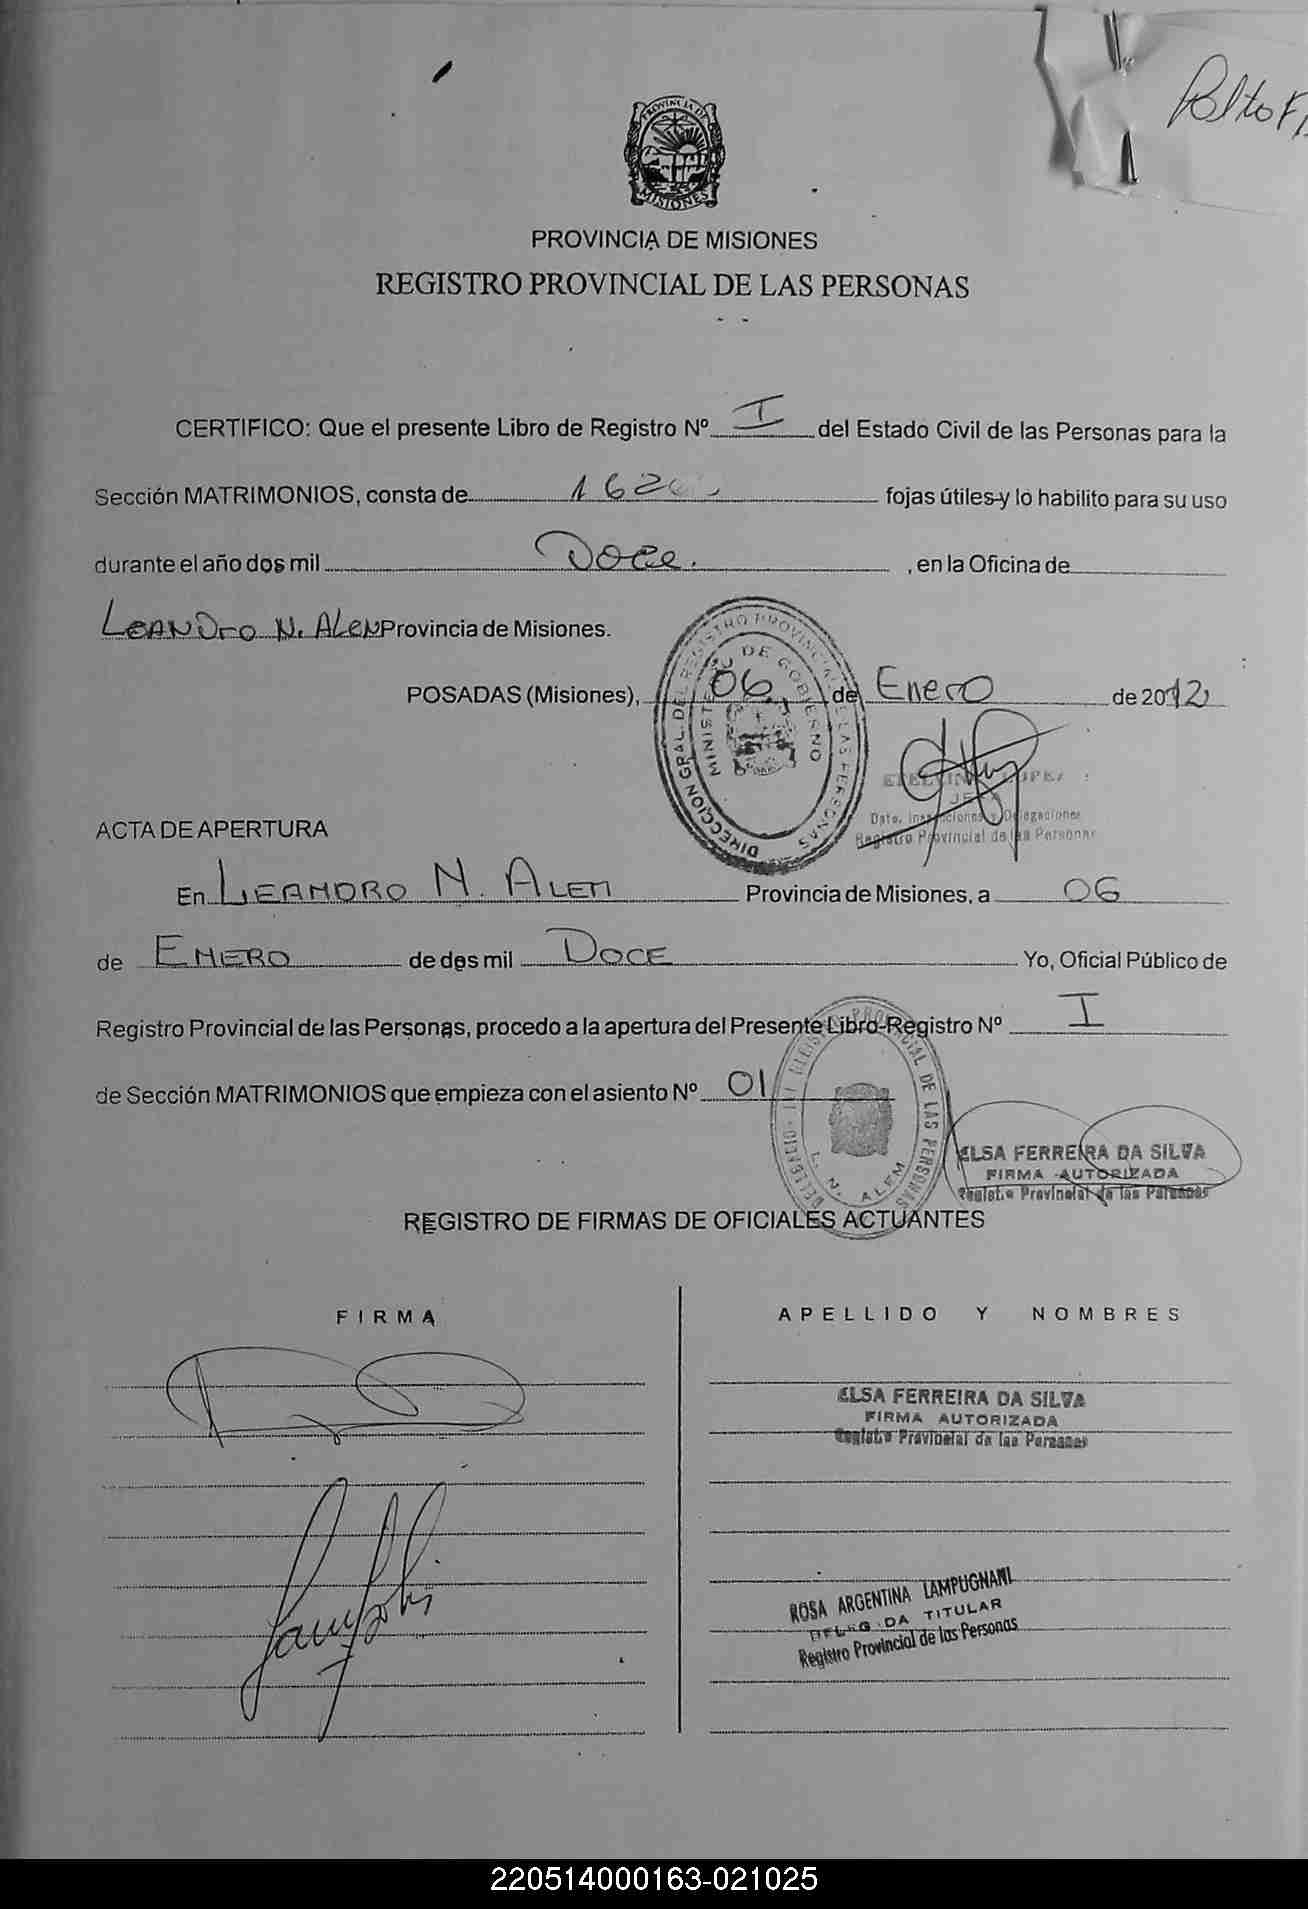 PROVINCIA DE
MISIONES
PROVINCIA DE MISIONES
REGISTRO PROVINCIAL DE LAS PERSONAS
CERTIFICO: Que el presente Libro de Registro Nº I del Estado Civil de las Personas para la
Sección MATRIMONIOS, consta de fojas útiles y lo habilito para su uso
durante el año dos mil Doce. , en la Oficina de
LEANDro N. ALeN Provincia de Misiones.
POSADAS (Misiones), 06 de Enero de 2012
DIRECCION GRAL. DEL REGISTRO PROVINCIAL DE LAS PERSONAS
MINISTERIO DE GOBIERNO
Registro Provincial de las Personas
ACTA DE APERTURA
En LEANDRO N. ALEM Provincia de Misiones, a 06
de ENERO de dos mil DOCE Yo, Oficial Público de
Registro Provincial de las Personas, procedo a la apertura del Presente Libro-Registro Nº I
de Sección MATRIMONIOS que empieza con el asiento Nº 01
L. N. ALEM
ELSA FERREIRA DA SILVA
FIRMA AUTORIZADA
Registro Provincial de las Personas
REGISTRO DE FIRMAS DE OFICIALES ACTUANTES
FIRMA APELLIDO Y NOMBRES
ELSA FERREIRA DA SILVA
FIRMA AUTORIZADA
Registro Provincial de las Personas
ROSA ARGENTINA LAMPUGNANI
DELEGADA TITULAR
Registro Provincial de las Personas
220514000163-021025